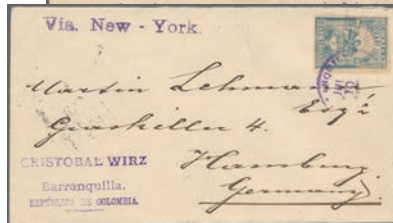 Via. New - York.
Martin Lehmann
Esq
Graskeller 4.
Hamburg
Germany.
CRISTOBAL WIRZ
Barranquilla.
REPÚBLICA DE COLOMBIA.